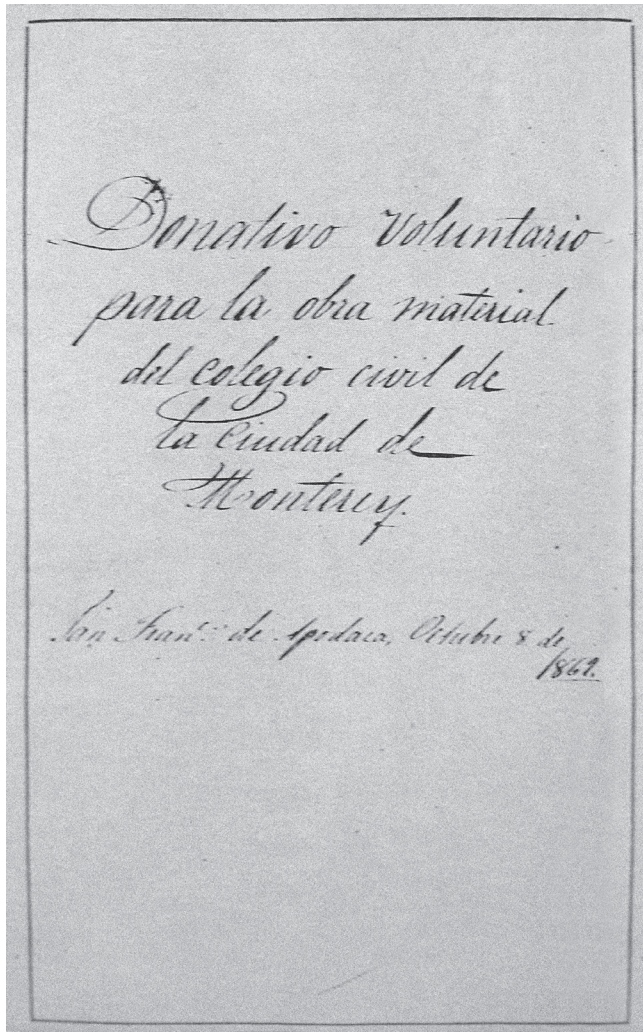 Donativo voluntario
para la obra material
del colegio civil de
la Ciudad de
Monterey.
San Fran.co de Apodaca, Octubre 8 de
1869.